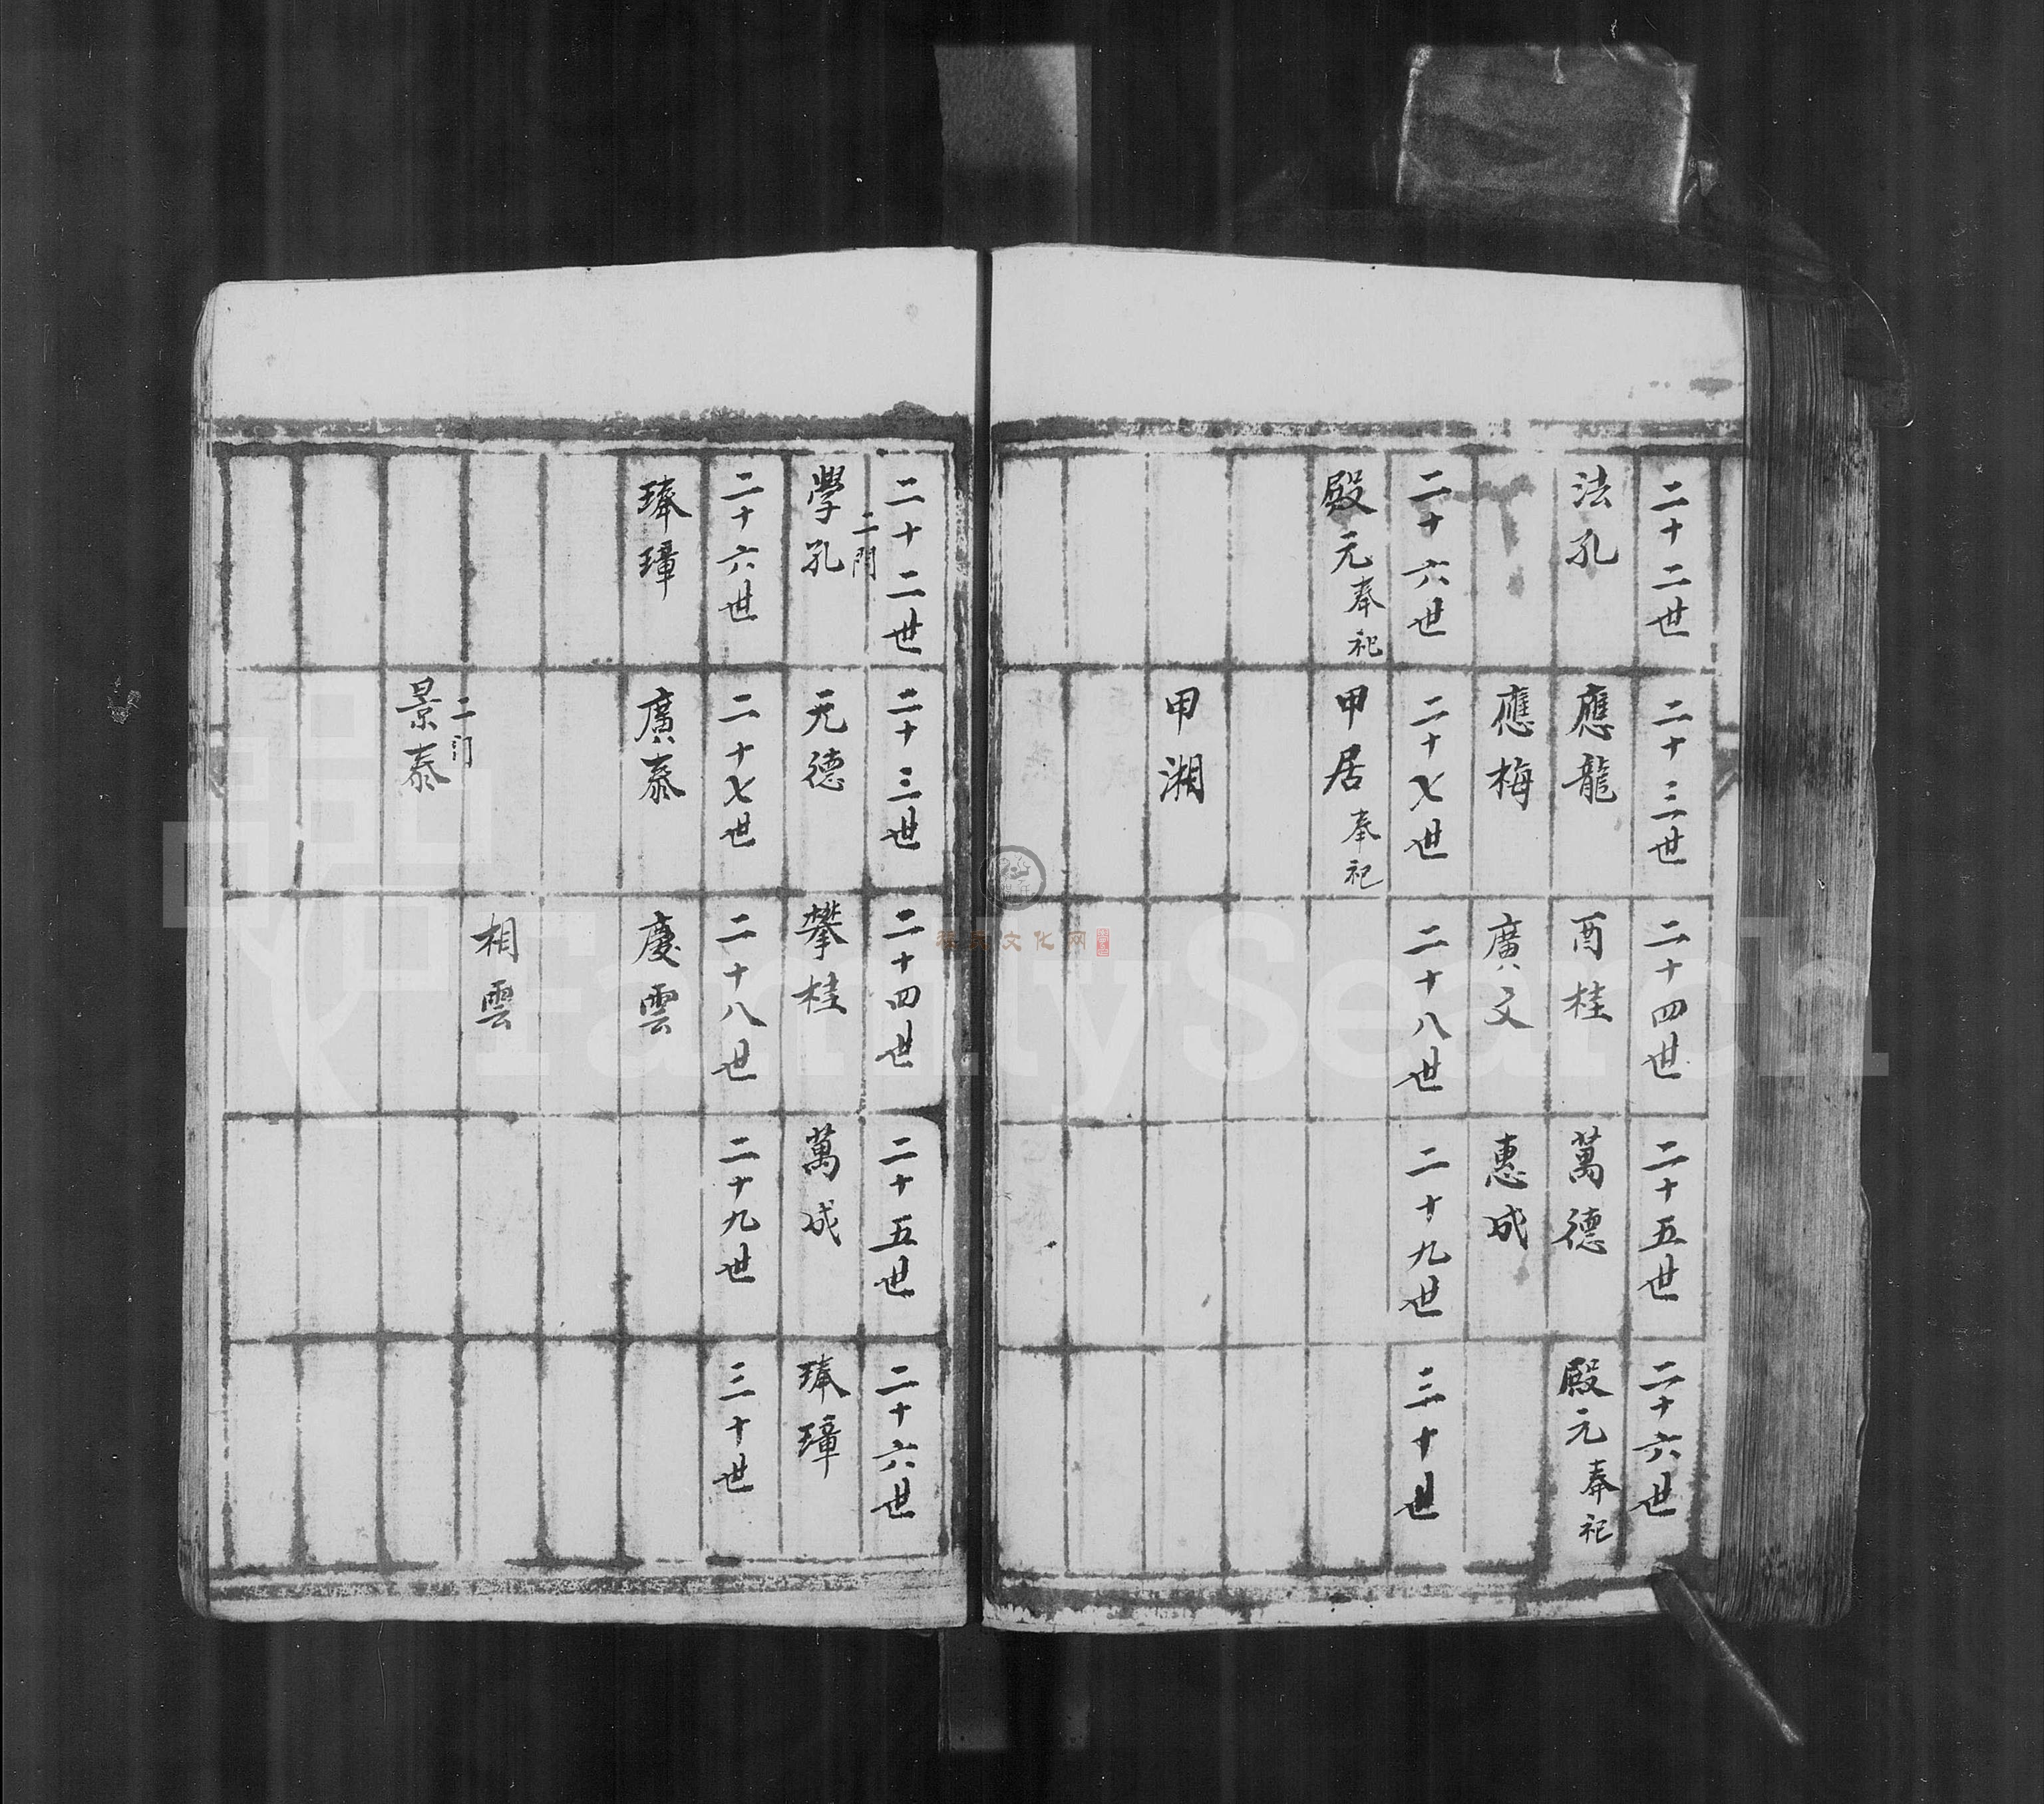 二十二世
二十三世
二十四世
二十五世
二十六世
法孔
應龍
酉桂
萬德
殿元奉祀
應梅
廣文
惠成
二十六世
二十七世
二十八世
二十九世
三十世
殿元奉祀
甲居奉祀
甲湘
二十二世
二十三世
二十四世
二十五世
二十六世
二門
學孔
元德
攀桂
萬成
琫璋
二十六世
二十七世
二十八世
二十九世
三十世
琫璋
廣泰
慶雲
相雲
二门
景泰
FamilySearch
文化网